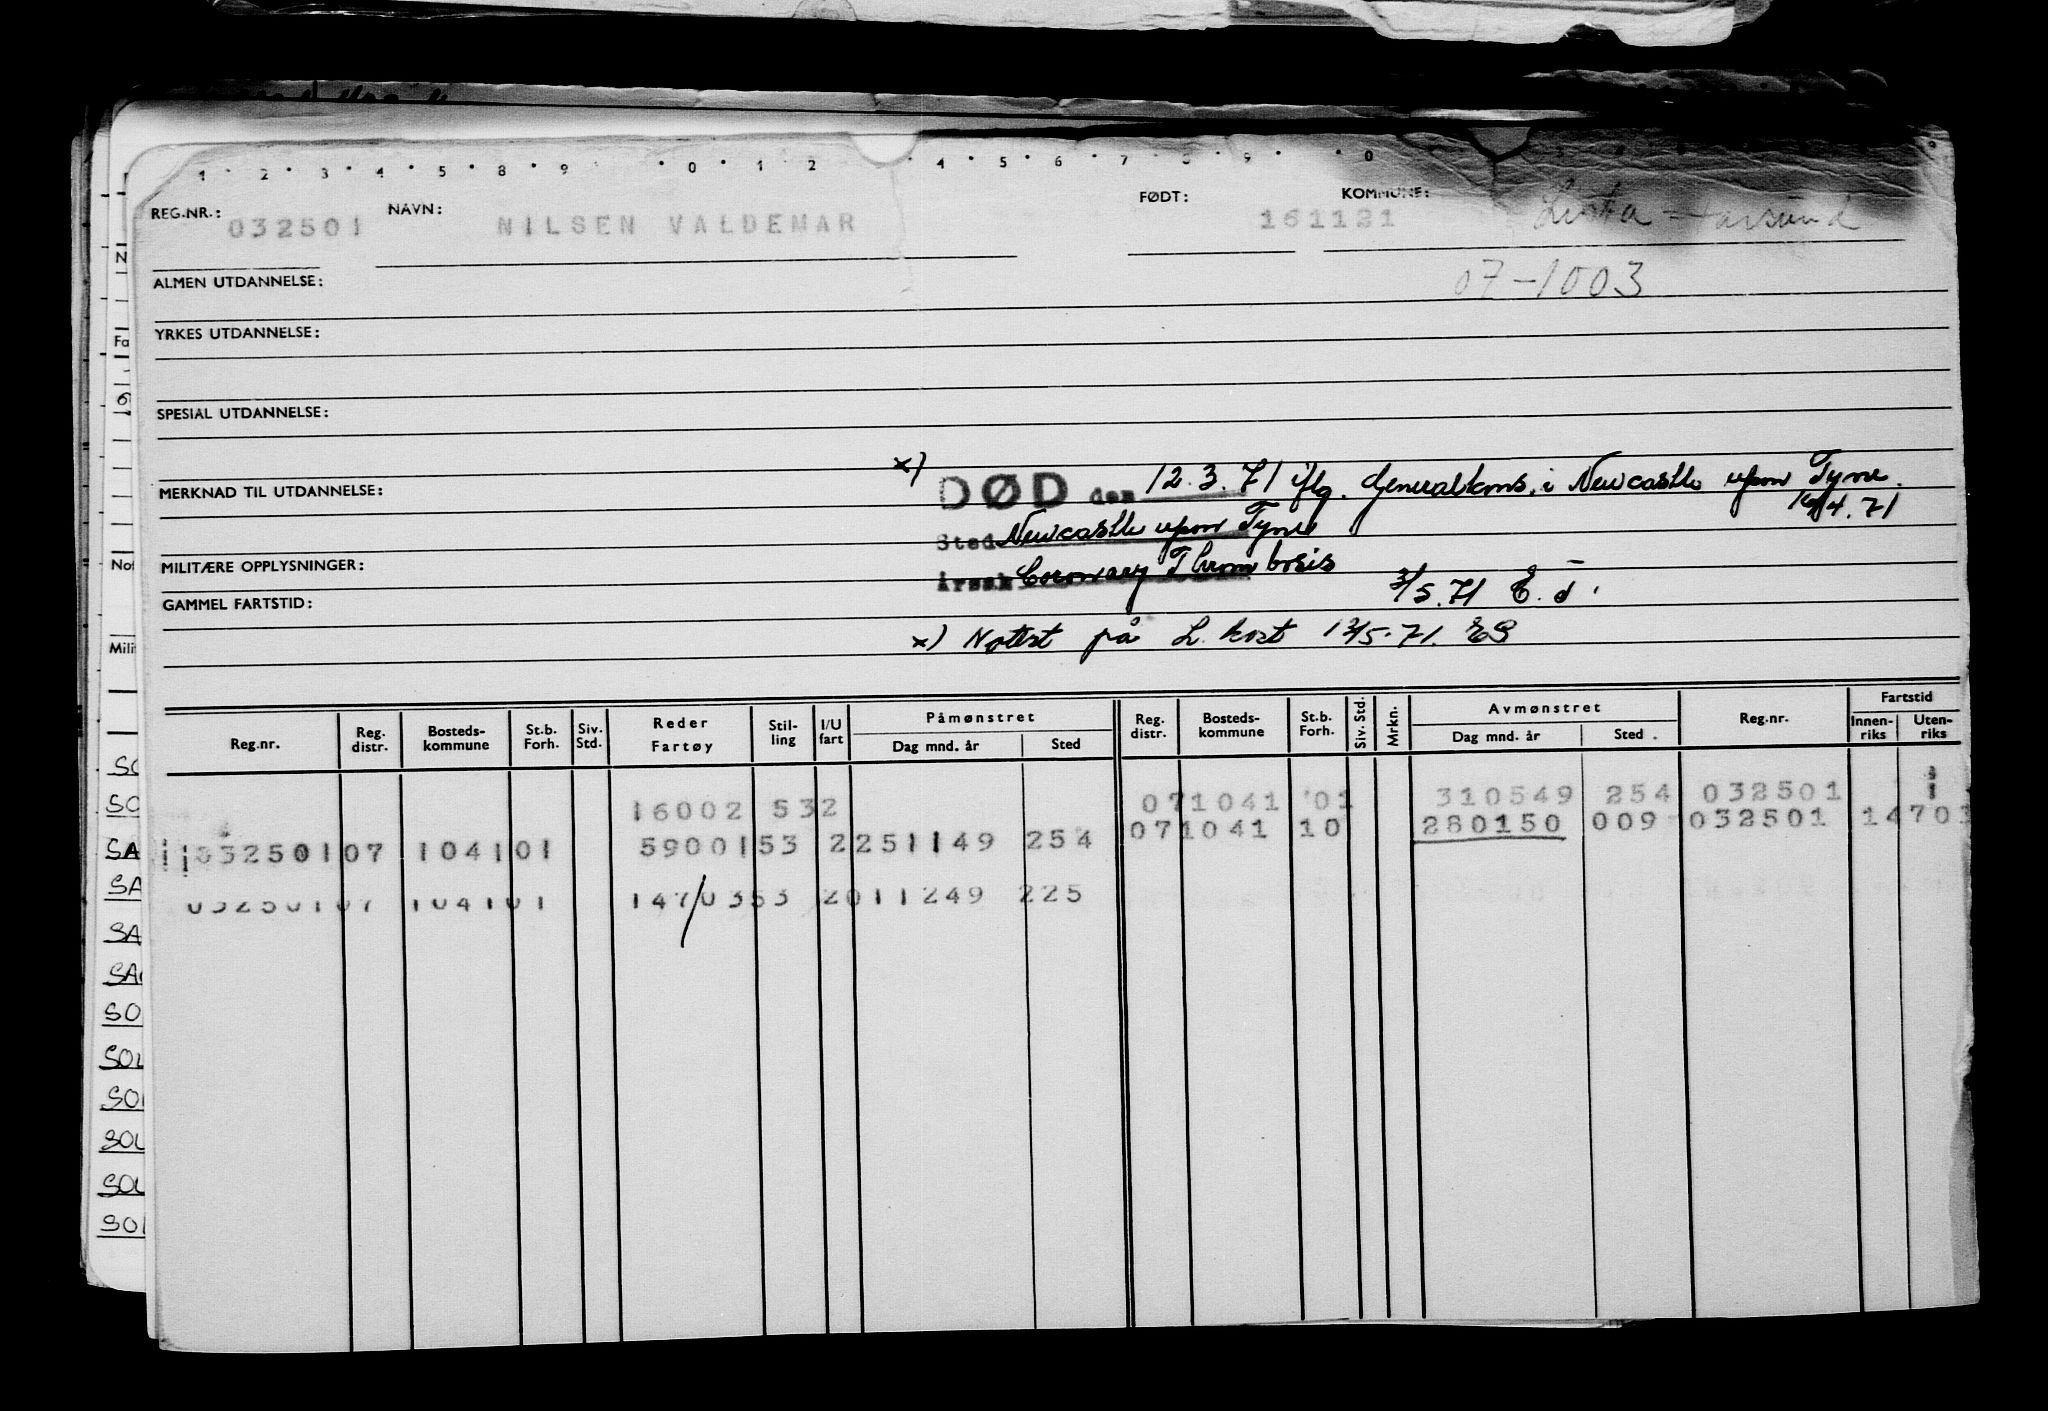 1 · 2 · 3 · 4 · 5 · 8 · 9 · 0 · 1 · 2 · 4 · 5 · 6 · 7 · 8 · 9 · 0
REG.NR.: 032501 NAVN: NILSEN VALDEMAR FØDT: 161121 KOMMUNE: Lista - Farsund
07-1003
ALMEN UTDANNELSE:
YRKES UTDANNELSE:
SPESIAL UTDANNELSE:
x)
MERKNAD TIL UTDANNELSE: DØD den 12.3.71 iflg. Generalkons. i Newcastle upon Tyne.
/4.71
Sted Newcastle upon Tyne
MILITÆRE OPPLYSNINGER: Årsak Coronary Thrombosis
GAMMEL FARTSTID: 3/5.71
x) Notert på L. kort 13/5.71. ES
Reg.nr. Reg. distr. Bosteds-kommune St.b. Forh. Siv. Std. Reder Fartøy Stil-ling I/U fart Påmønstret Dag mnd. år Sted Reg. distr. Bosteds-kommune St.b. Forh. Siv. Std. Mrkn. Avmønstret Dag mnd. år Sted Reg.nr. Fartstid Innen-riks Uten-riks
16002 532 071041 01 310549 254 032501
03250107 104101 5900153 2251149 254 071041 10 280150 009 032501 14703
03250107 104101 1470353 2011249 225
N
Fa
6
Not
Milit
SO
SO
SA
SA
SA
SA
SO
SOL
SO
SOL
SOL
SO